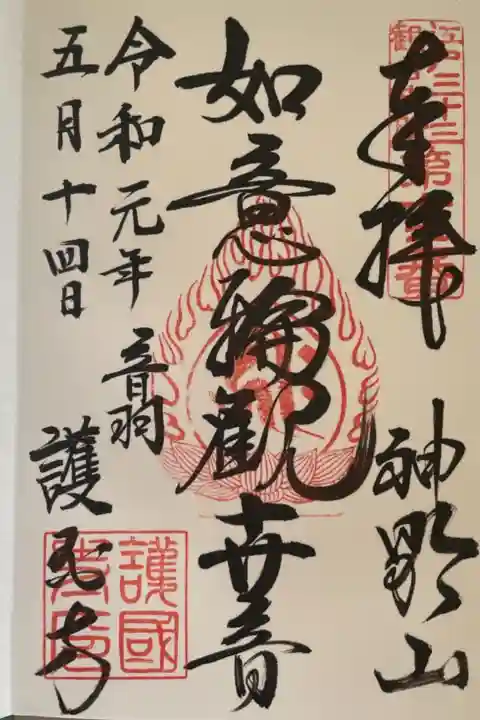 奉拝
神齢山
如意輪觀世音
令和元年
五月十四日
音羽
護国寺
江戸三十三
護國